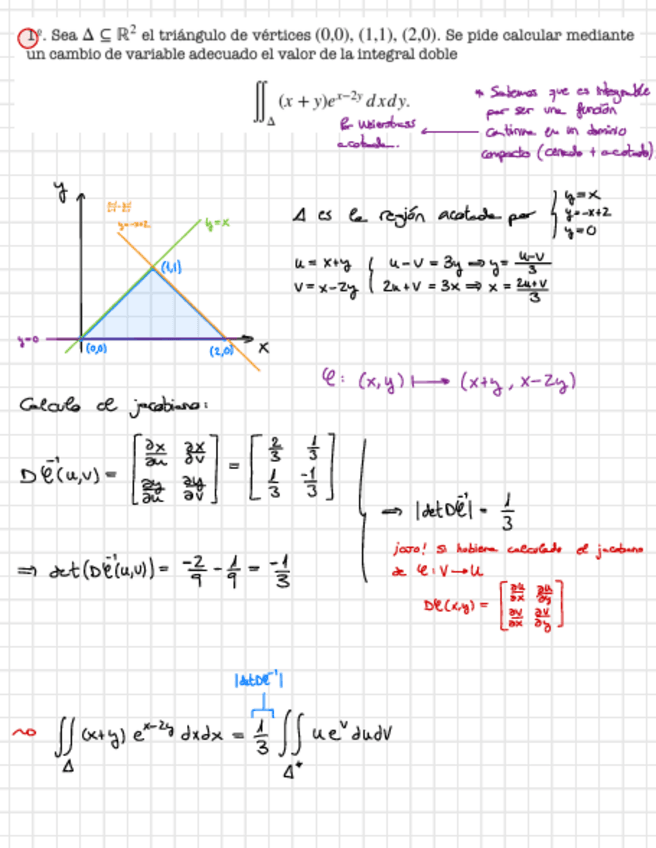 1º. Sea Δ ⊆ ℝ² el triángulo de vértices (0,0), (1,1), (2,0). Se pide calcular mediante
un cambio de variable adecuado el valor de la integral doble
∬_Δ (x + y)e^{x−2y} dxdy.
* Sabemos que es integrable
por ser una función
continua en un dominio
compacto (cerrado + acotado)
Weierstrass
acotada.
y
y=-x+2
y=x
(1,1)
y=0
(0,0)
(2,0)
x
Δ es la región acotada por { y=x
y=-x+2
y=0
u = x+y { u-v = 3y ⇒ y = (u-v)/3
v = x-2y { 2u+v = 3x ⇒ x = (2u+v)/3
φ: (x,y) ↦ (x+y, x-2y)
Calculo el jacobiano:
Dφ⁻¹(u,v) = [∂x/∂u ∂x/∂v; ∂y/∂u ∂y/∂v] = [2/3 1/3; 1/3 -1/3]
⇒ det(Dφ⁻¹(u,v)) = -2/9 - 1/9 = -1/3
⇒ |det Dφ⁻¹| = 1/3
¡ojo! si hubiera calculado el jacobiano
de φ: V→U
Dφ(x,y) = [∂u/∂x ∂u/∂y; ∂v/∂x ∂v/∂y]
|detDφ⁻¹|
∬_Δ (x+y) e^{x-2y} dxdx = 1/3 ∬_Δ* u e^v du dv